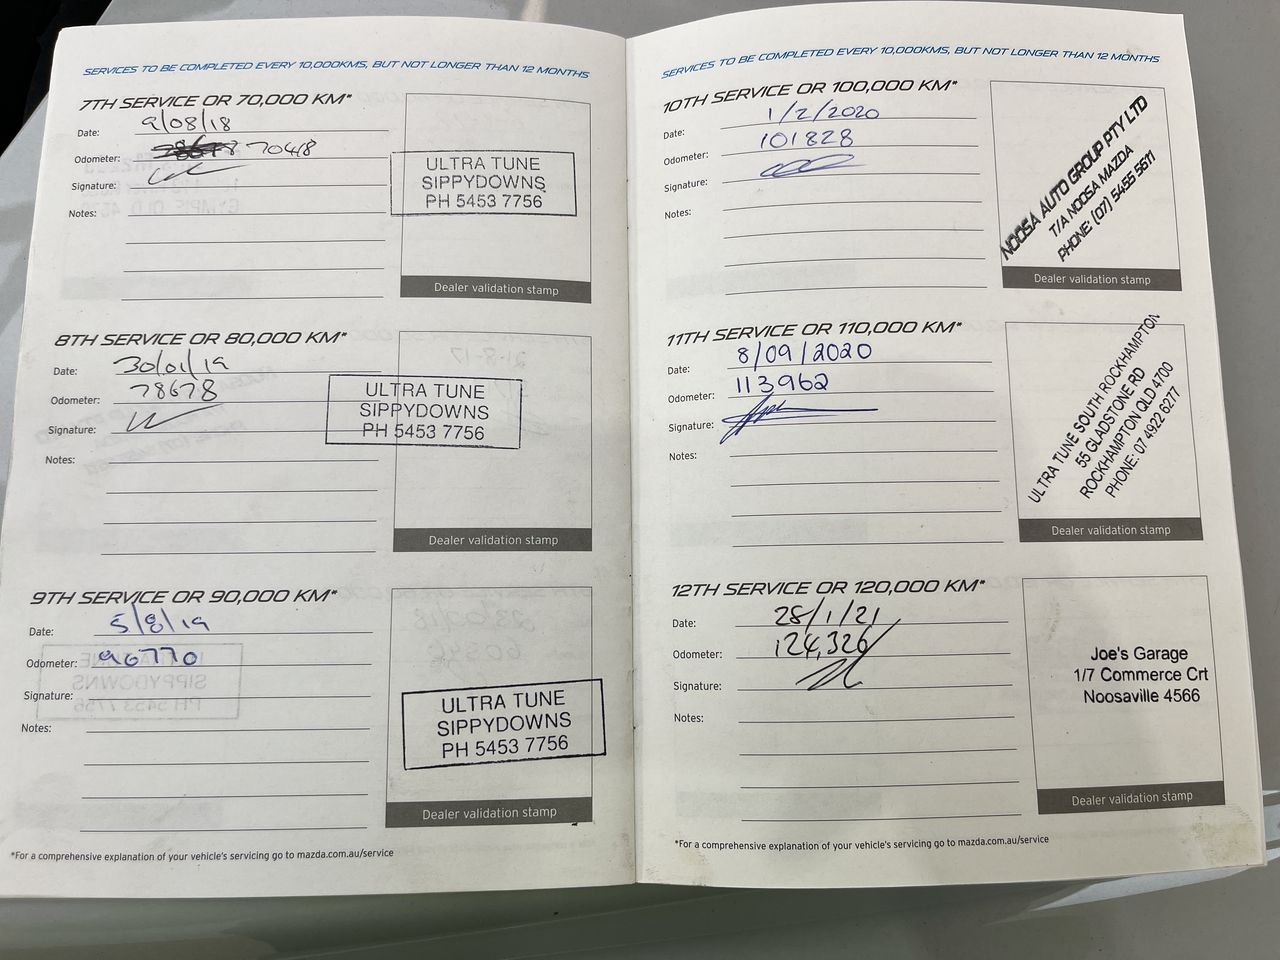 SERVICES TO BE COMPLETED EVERY 10,000KMS, BUT NOT LONGER THAN 12 MONTHS
7TH SERVICE OR 70,000 KM*
Date: 9/08/18
Odometer: 70418
Signature:
Notes:
ULTRA TUNE
SIPPYDOWNS
PH 5453 7756
Dealer validation stamp
8TH SERVICE OR 80,000 KM*
Date: 30/01/19
Odometer: 78678
Signature:
Notes:
ULTRA TUNE
SIPPYDOWNS
PH 5453 7756
Dealer validation stamp
9TH SERVICE OR 90,000 KM*
Date: 5/8/19
Odometer: 90770
Signature:
Notes:
ULTRA TUNE
SIPPYDOWNS
PH 5453 7756
Dealer validation stamp
*For a comprehensive explanation of your vehicle's servicing go to mazda.com.au/service
SERVICES TO BE COMPLETED EVERY 10,000KMS, BUT NOT LONGER THAN 12 MONTHS
10TH SERVICE OR 100,000 KM*
Date: 1/2/2020
Odometer: 101828
Signature:
Notes:
NOOSA AUTO GROUP PTY LTD
T/A NOOSA MAZDA
PHONE: (07) 5455 5611
Dealer validation stamp
11TH SERVICE OR 110,000 KM*
Date: 8/09/2020
Odometer: 113962
Signature:
Notes:
ULTRA TUNE SOUTH ROCKHAMPTON
55 GLADSTONE RD
ROCKHAMPTON QLD 4700
PHONE: 07 4922 6277
Dealer validation stamp
12TH SERVICE OR 120,000 KM*
Date: 28/1/21
Odometer: 124,326
Signature:
Notes:
Joe's Garage
1/7 Commerce Crt
Noosaville 4566
Dealer validation stamp
*For a comprehensive explanation of your vehicle's servicing go to mazda.com.au/service